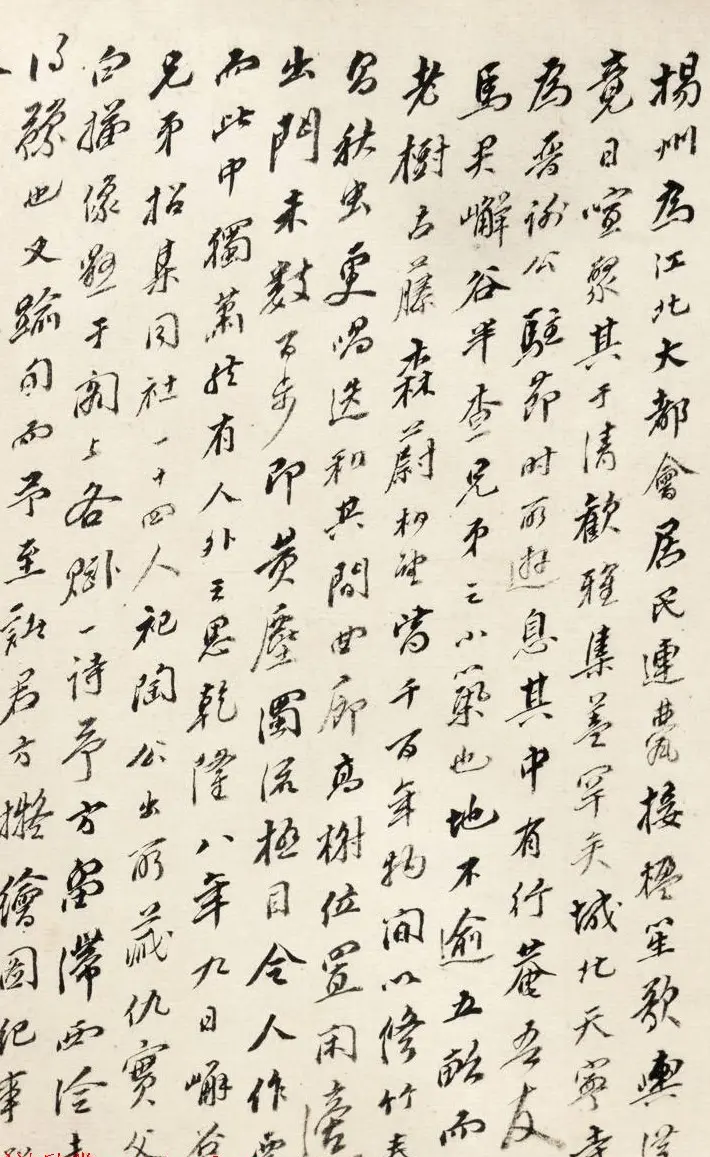 揚州為江北大都會居民連甍接楹笙歌輿
竟日喧聚其于清歡雅集蓋罕矣城北天寧寺
為晋謝公駐節時所遊息其中有行菴吾友
馬君嶰谷半查兄弟之小築也地不逾五畝而
老樹古藤森蔚相望皆千百年物間以脩竹春
鳥秋虫更唱迭和其間曲廊高榭位置閑
出門未數百步即黃塵濁流極目令人作
而此中獨蕭然有人外之思乾隆八年九日嶰谷
兄弟招集同社一十四人祀陶公出所藏仇實父
白描像懸于閣上各賦一詩予方留滯西泠
得豫也又踰旬而予至諸君方擬繪圖紀事